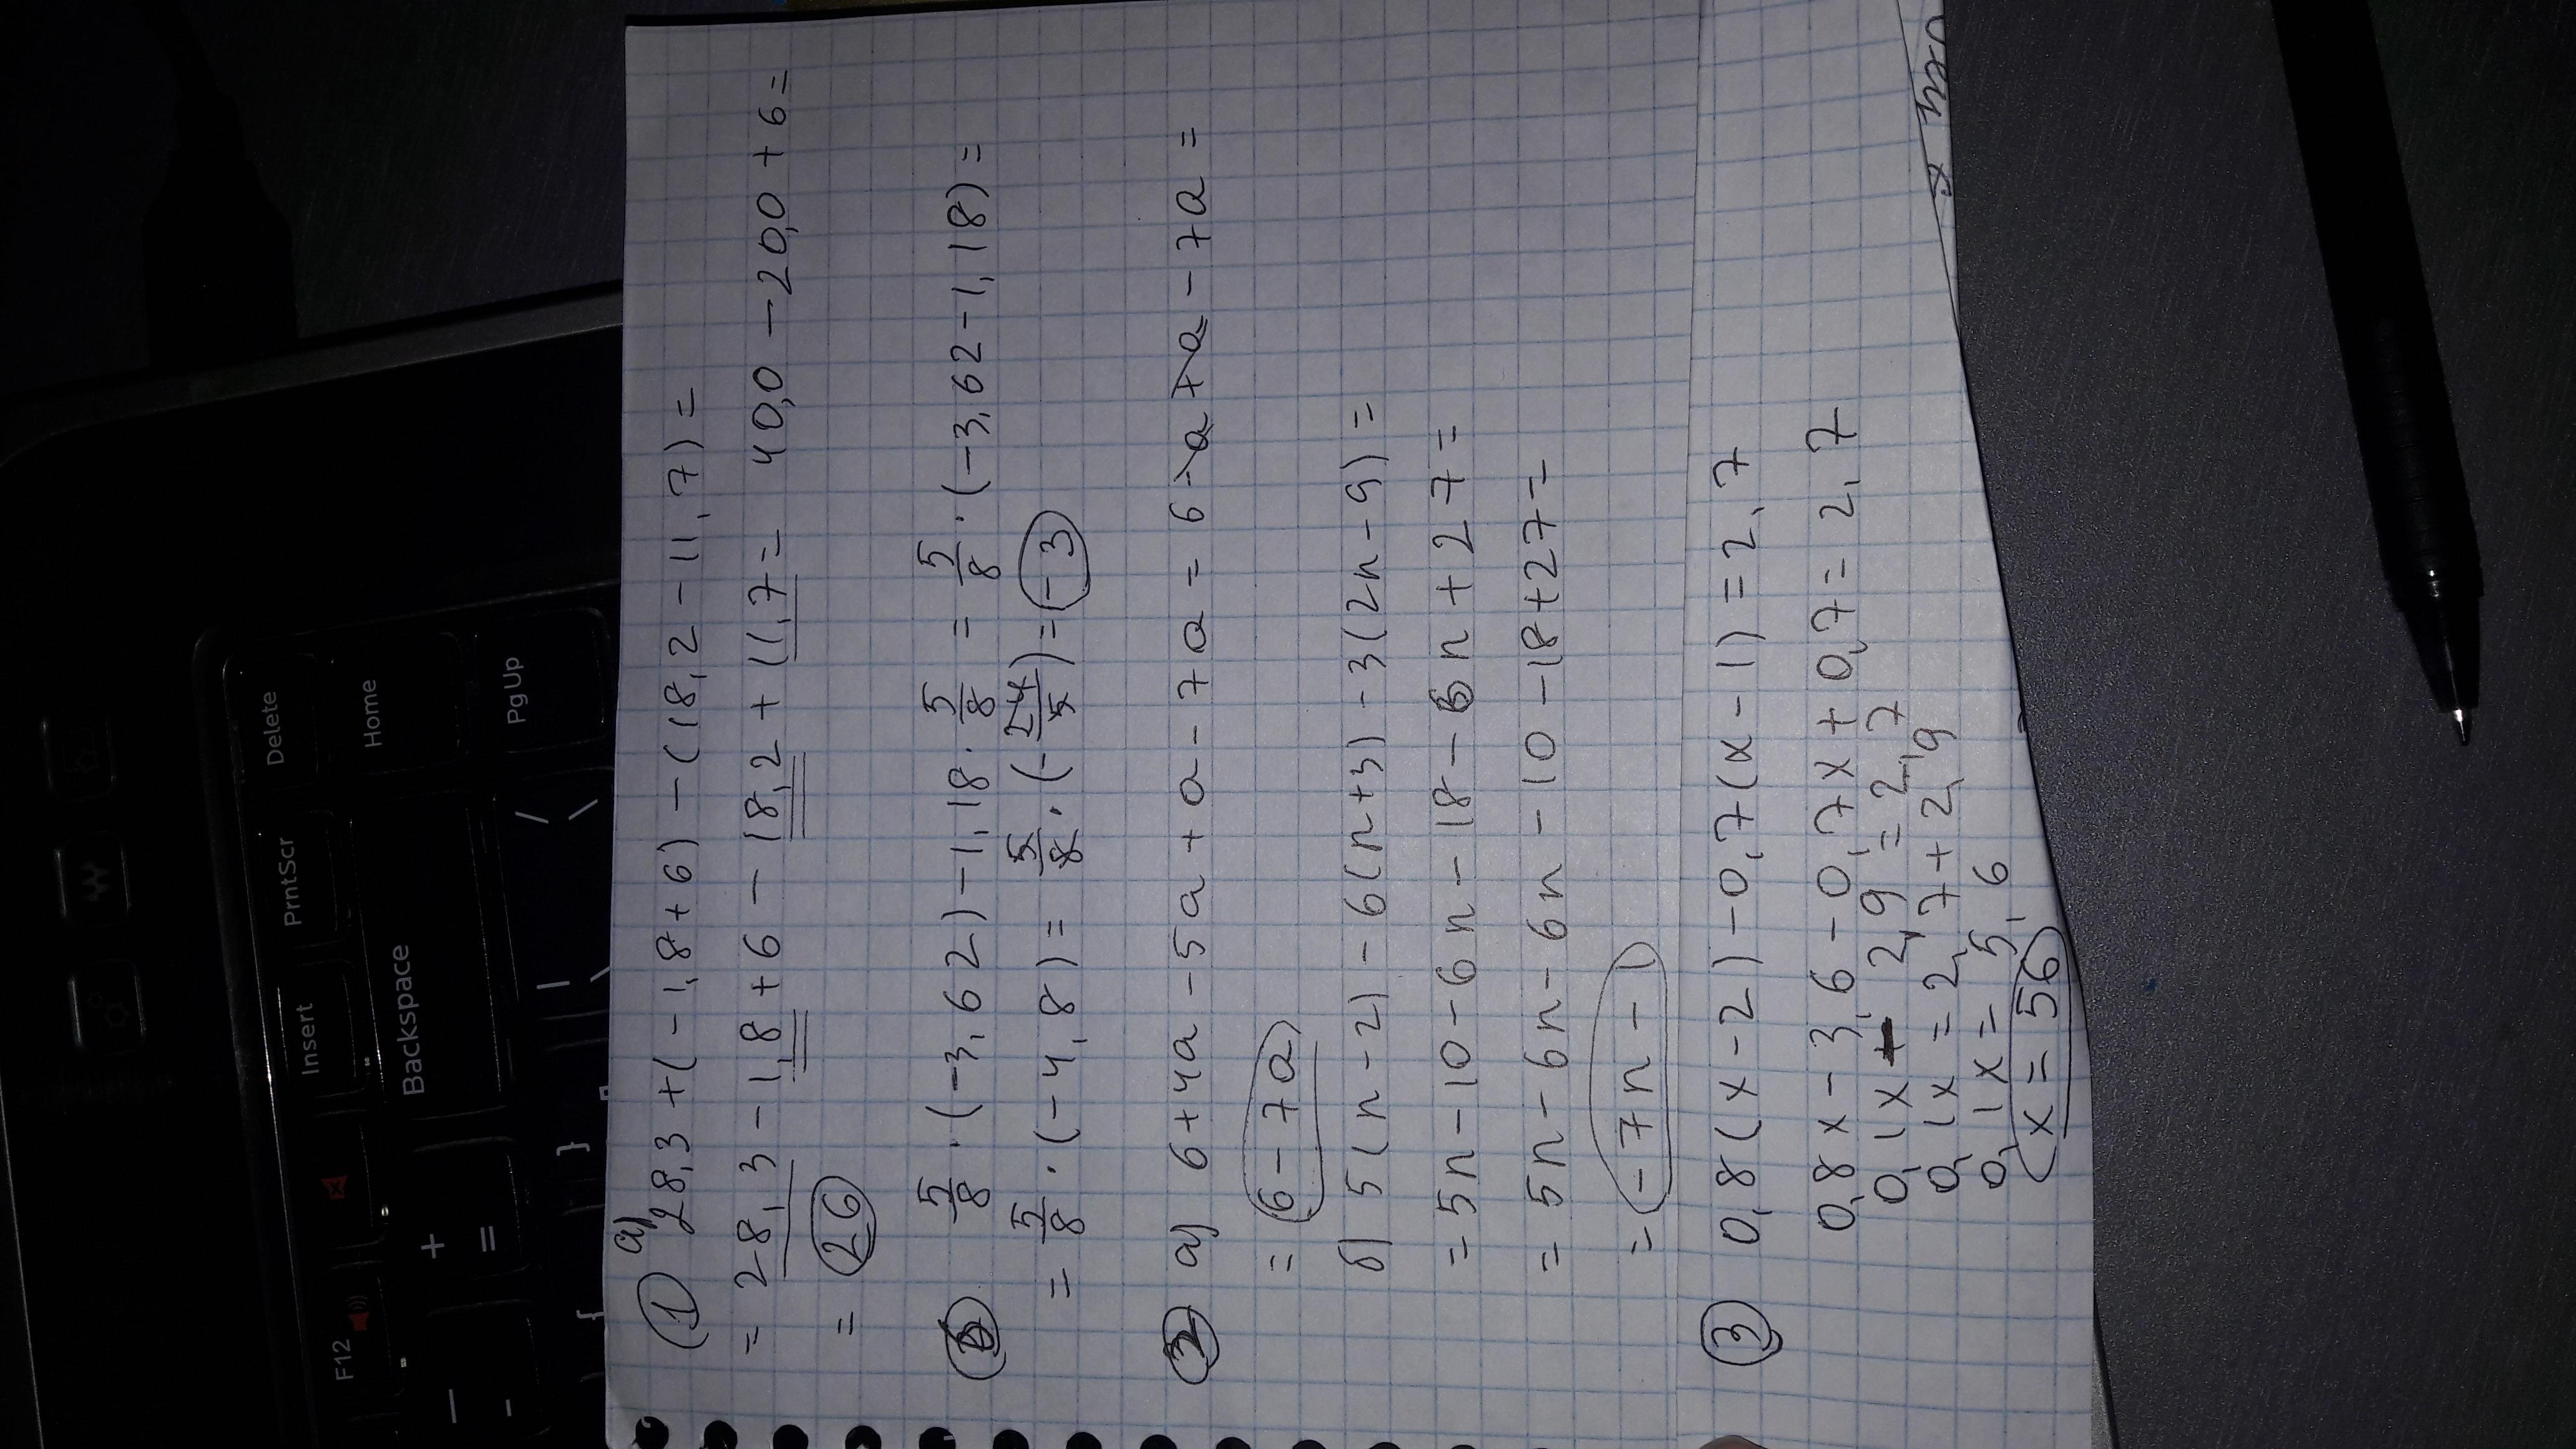 ① а) 28,3 + (-1,8 + 6) - (18,2 - 11,7) =
= 28,3 - 1,8 + 6 - 18,2 + 11,7 = 40,0 - 20,0 + 6 =
= 26
б 5/8 · (-3,62) - 1,18 · 5/8 = 5/8 · (-3,62 - 1,18) =
= 5/8 · (-4,8) = 5/8 · (-24/5) = -3
② а) 6 + 4a - 5a + a - 7a = 6 - a + a - 7a =
= 6 - 7a
б) 5(n - 2) - 6(n + 3) - 3(2n - 9) =
= 5n - 10 - 6n - 18 - 6n + 27 =
= 5n - 6n - 6n - 10 - 18 + 27 =
= -7n - 1
③ 0,8(x - 2) - 0,7(x - 1) = 2,7
0,8x - 3,6 - 0,7x + 0,7 = 2,7
0,1x - 2,9 = 2,7
0,1x = 2,7 + 2,9
0,1x = 5,6
x = 56
F12
Insert
PrntScr
Delete
Backspace
Home
PgUp
+
=
-
{
}
|
\
/
\